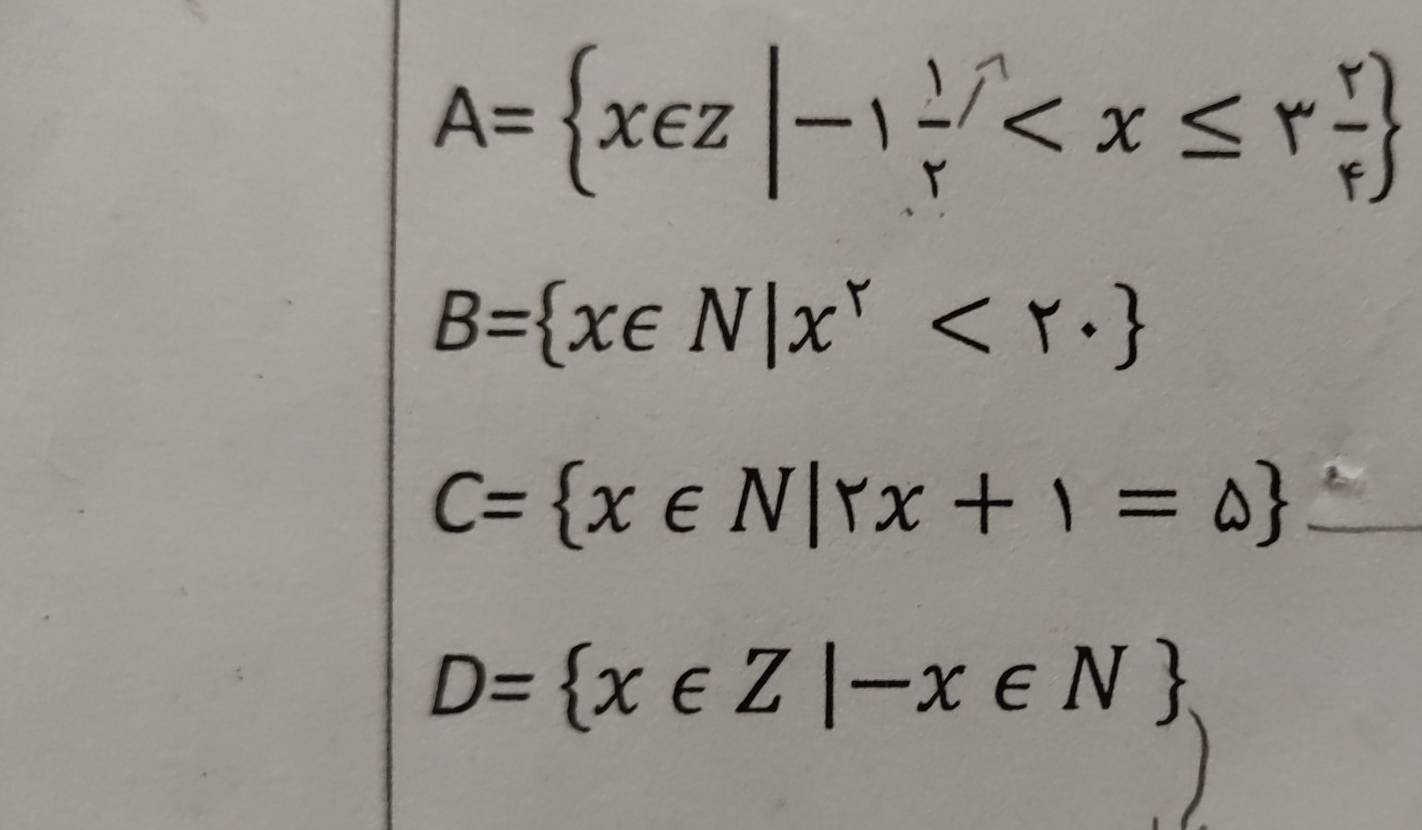 A= {x∈z | −۱ ۱/۲ < x ≤ ۳ ۲/۴}
B={x∈ N|x^۲ < ۲۰}
C= {x ∈ N|۲x + ۱ = ۵}
D= {x ∈ Z |−x ∈ N }